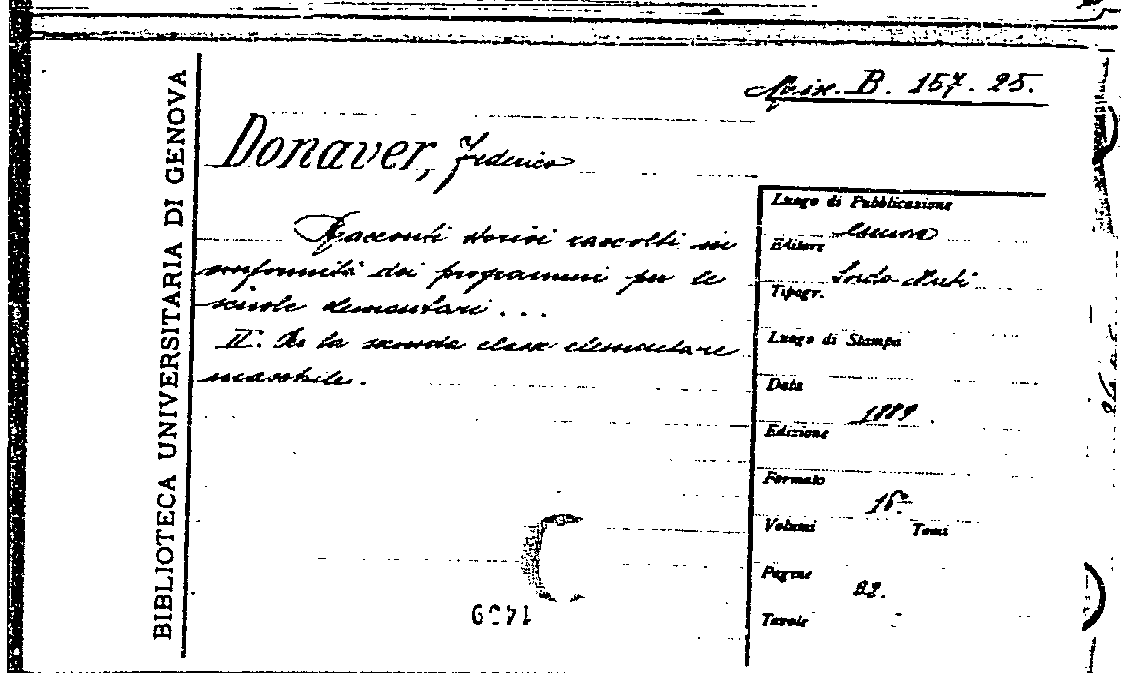 BIBLIOTECA UNIVERSITARIA DI GENOVA
B. 157. 25.
Donaver, Federico
Racconti storici raccolti in
conformità dei programmi per le
scuole elementari ...
II. Per la seconda classe elementare
maschile.
Luogo di Pubblicazione
Genova
Editore
Sordo Muti
Tipogr.
Luogo di Stampa
Data
1889.
Edizione
Formato
16º
Volumi Tomi
Pagine
82.
Tavole